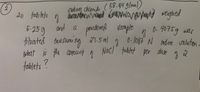 ①
sodium chloride (58.44 g/mol)
20 tablets of weighed
6.25 g and a powdered sample of 0.4075 g was
titrated consuming 27.5 ml of 0.1050 N silver solution.
what is the quantity of NaCl / tablet per dose of 2
tablets?